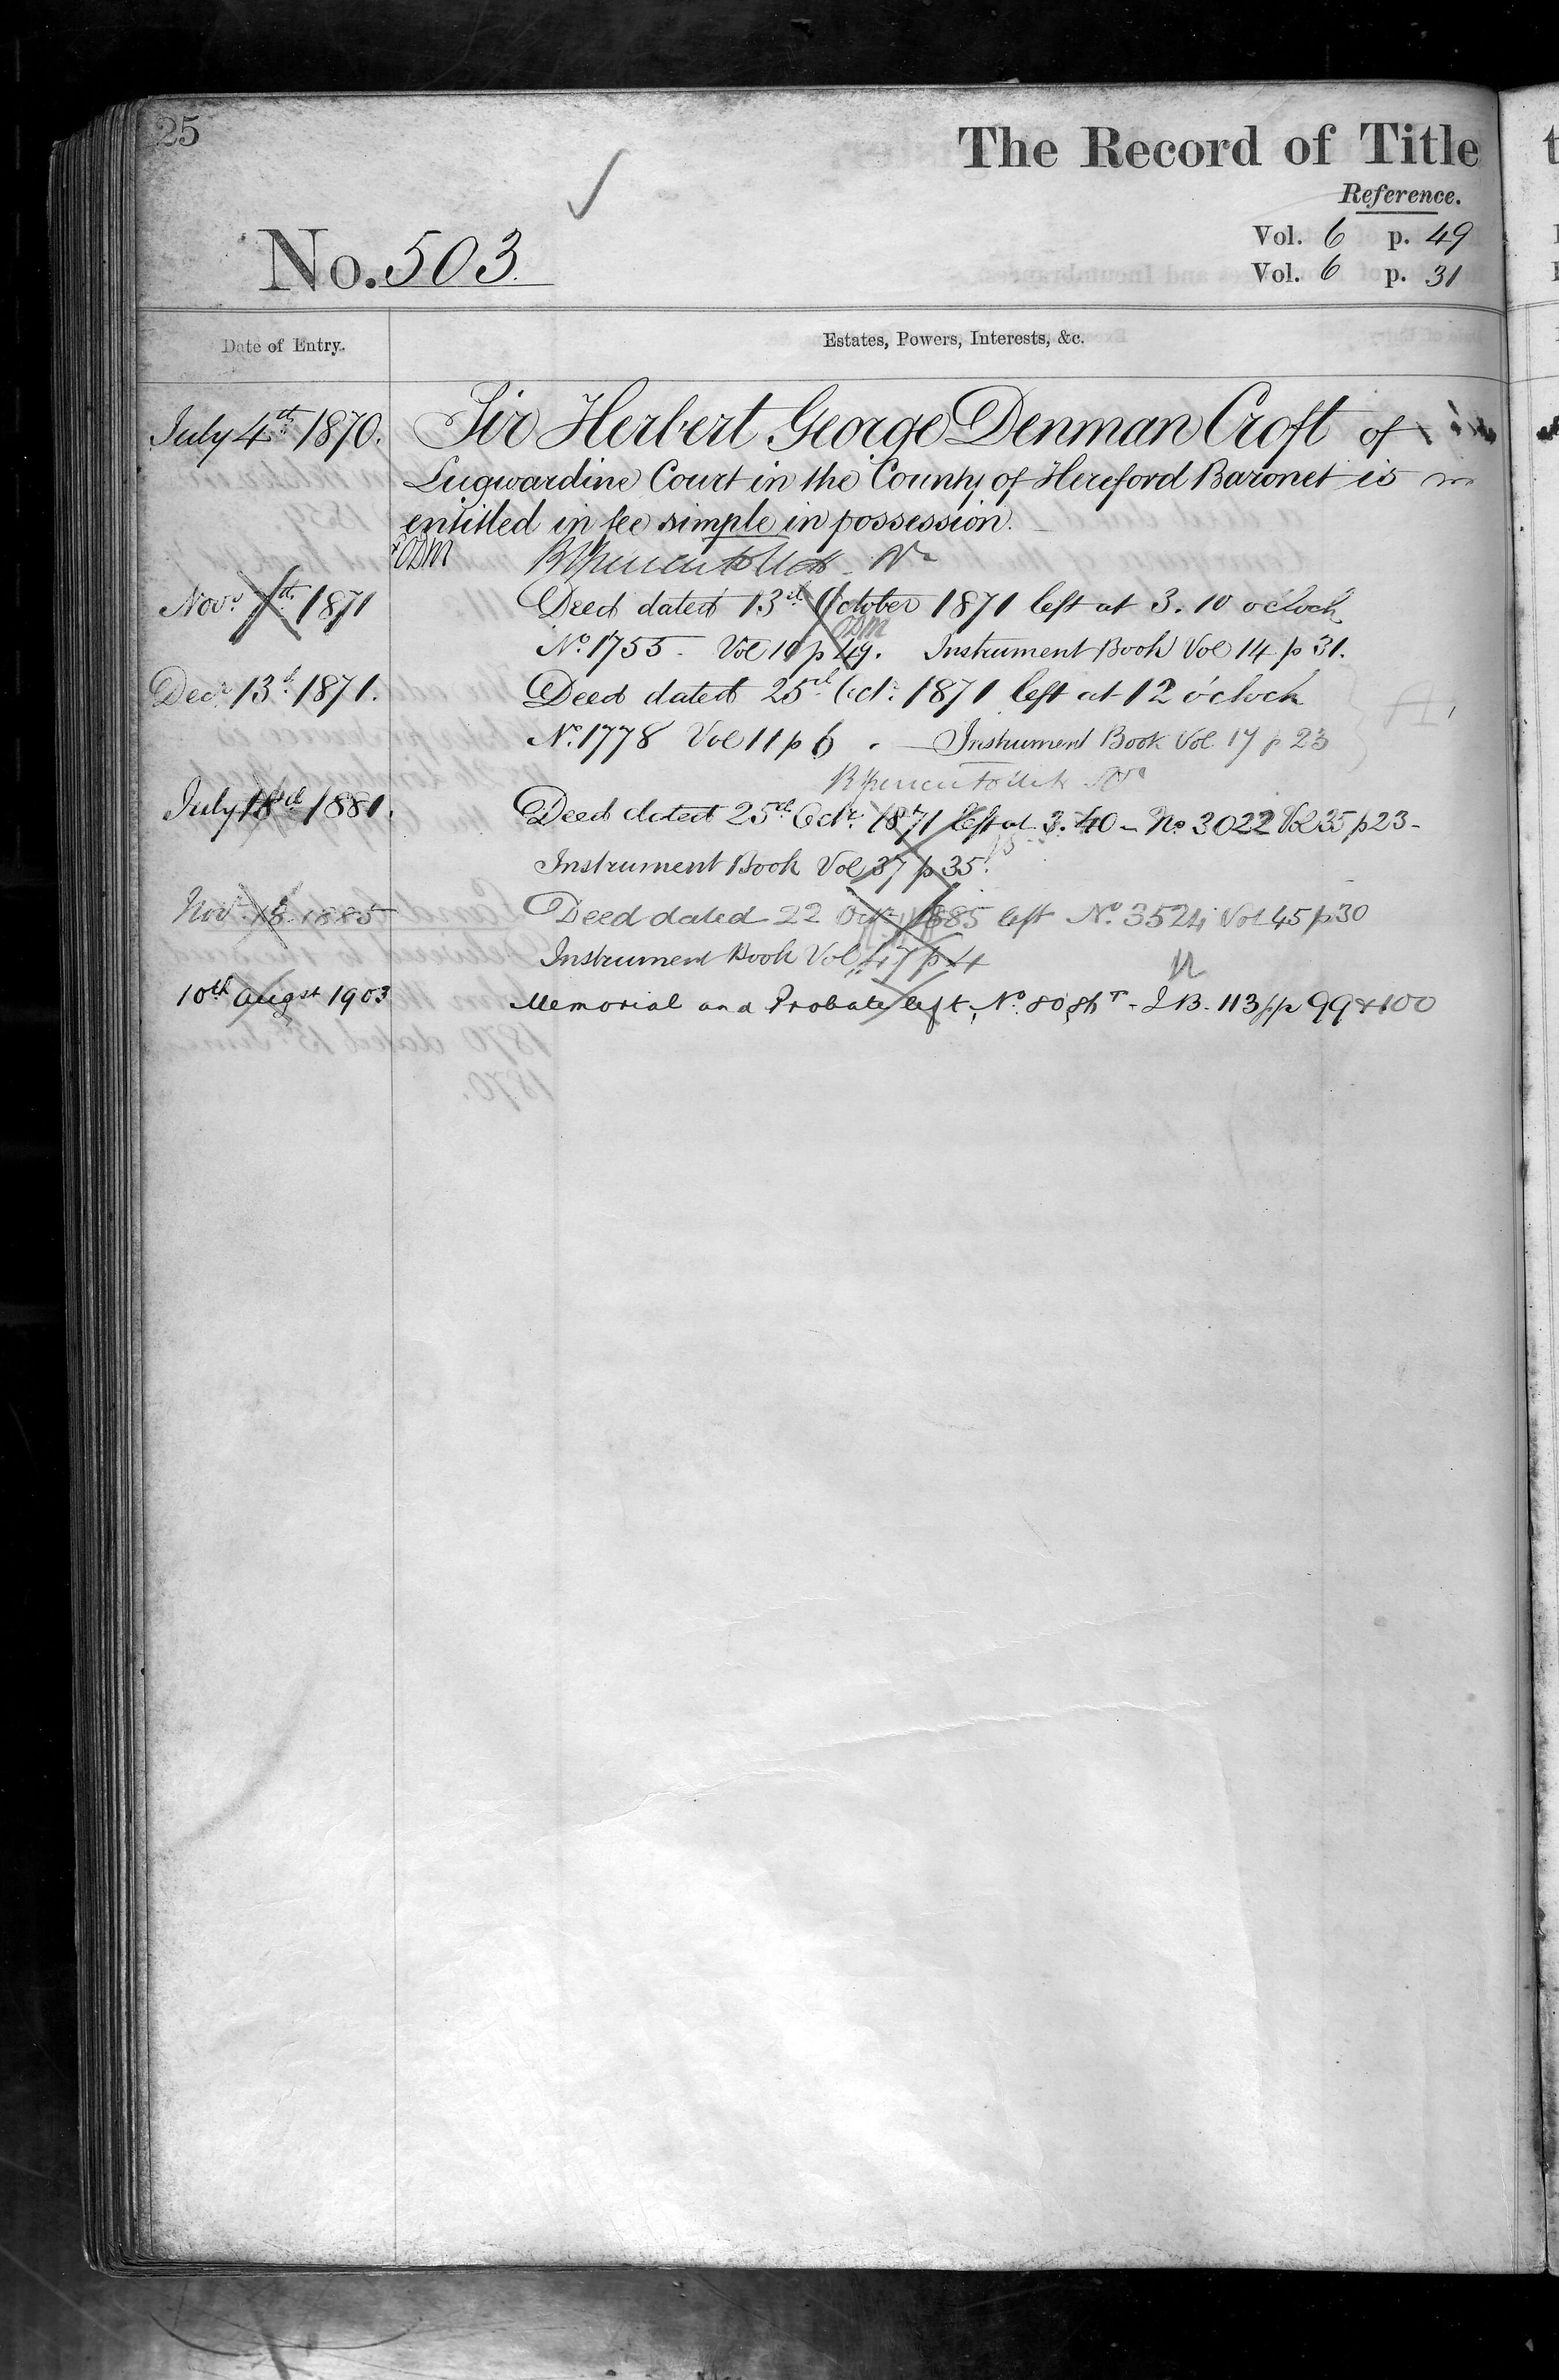 25
The Record of Title
Reference.
No. 503.
Vol. 6 p. 49
Vol. 6 p. 31
Date of Entry.
Estates, Powers, Interests, &c.
July 4th 1870. Sir Herbert George Denman Croft of
Lugwardine Court in the County of Hereford Baronet is
entitled in fee simple in possession.
Novr 1871 Deed dated 13th October 1871 left at 3.10 o'clock
No. 1755 - Vol 10 p 49. Instrument Book Vol 14 p 31.
Decr 13th 1871. Deed dated 25th Octr. 1871 left at 12 o'clock
No. 1778 Vol 11 p 6 . — Instrument Book Vol 17 p 23
July 18th 1881. Deed dated 25th Octr. 1871 left at 3.40 - No 3022 Vol 35 p 23 -
Instrument Book Vol 37 p 35.
Novr. 18 1885 Deed dated 22 Octr 1885 left No. 3524 Vol 45 p 30
Instrument Book Vol 47 p 4
10th Augst 1903 Memorial and Probate left No. - I B. 113 pp 99 & 100